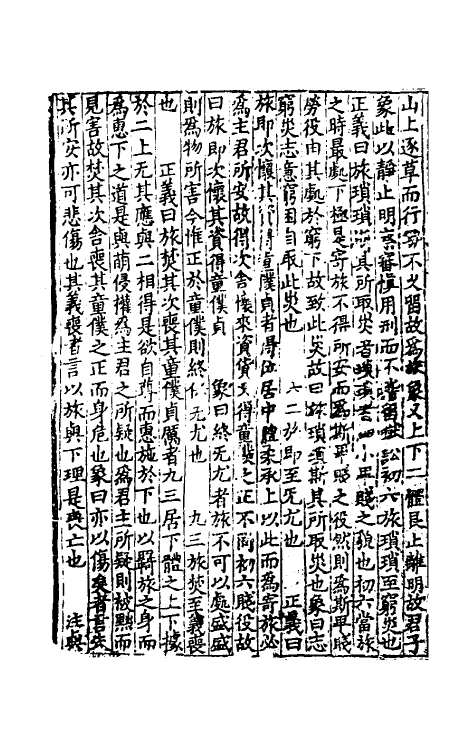 山上逐草而行勢不久留故爲旅象又上下二體艮止離明故君子
象此以靜止明察審慎用刑而不稽留獄訟初六旅瑣瑣至窮災也
正義曰旅瑣瑣斯其所取災者瑣瑣者細小卑賤之貌也初六當旅
之時最處下極是寄旅不得所安而爲斯卑賤之役然則爲斯卑賤
勞役由其處於窮下故致此災故曰旅瑣瑣斯其所取災也象曰志
窮災志意窮困自取此災也　六二旅即至无尤也　正義曰
旅即次懷其資得童僕貞者得位居中體柔承上以此而爲寄旅必
爲主君所安故得次舍懷來資貨又得童僕之正不同初六賤役故
曰旅即次懷其資得童僕貞　象曰終无尤者旅不可以處盛盛
則爲物所害今惟正於童僕則終保无尤也　九三旅焚至義喪
也　正義曰旅焚其次喪其童僕貞厲者九三居下體之上下據
於二上无其應與二相得是欲自尊而惠施於下也以羇旅之身而
爲惠下之道是與萌侵權爲主君之所疑也爲君主所疑則被黜而
見害故焚其次舍喪其童僕之正而身危也象曰亦以傷矣者言失
其所安亦可悲傷也其義喪者言以旅與下理是喪亡也　注與